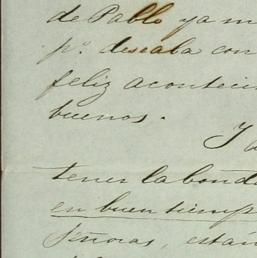 de Pablo ya m
pº deseaba con
feliz aconteci
buenos.
Y
tener la bond
en buen tiemp
señoras, están